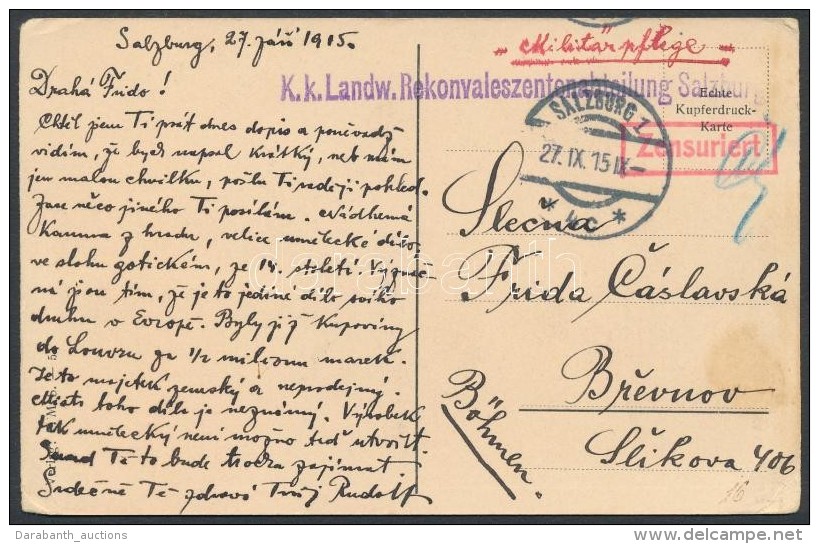 Salzburg, 27. září 1915.
Drahá Frido!
Chtěl jsem Ti psát dnes dopis a poněvadž
vidím, že bych napsal krátký, neb mám
jen malou chvilku, pošlu Ti raději pohled.
Zase něco jiného Ti posílám. Nádherná
Kamna z hradu, velice umělecké dílo,
ve slohu gotickém, ze 14. století. Význač-
ná jsou tím, že je to jediné dílo svého
druhu v Evropě. Byly již kupovány
do Louvru za 1/2 milionu marek.
Je to majetek zemský a neprodejný.
Mistr toho díla je neznámý. Výrobek
tak umělecký není možno teď utvořit.
Snad Tě to bude trochu zajímat.
Srdečně Tě zdraví Tvůj Rudolf
"Militärpflege"
K.k. Landw. Rekonvaleszentenabteilung Salzburg
Echte
Kupferdruck-
Karte
SALZBURG 1
27. IX. 15 IX
* 4c *
Zensuriert
Slečna
Frida Čáslavská
Břevnov
Slikova 406
Böhmen.
16
darabanth
Darabanth_auctions
delcampe.net